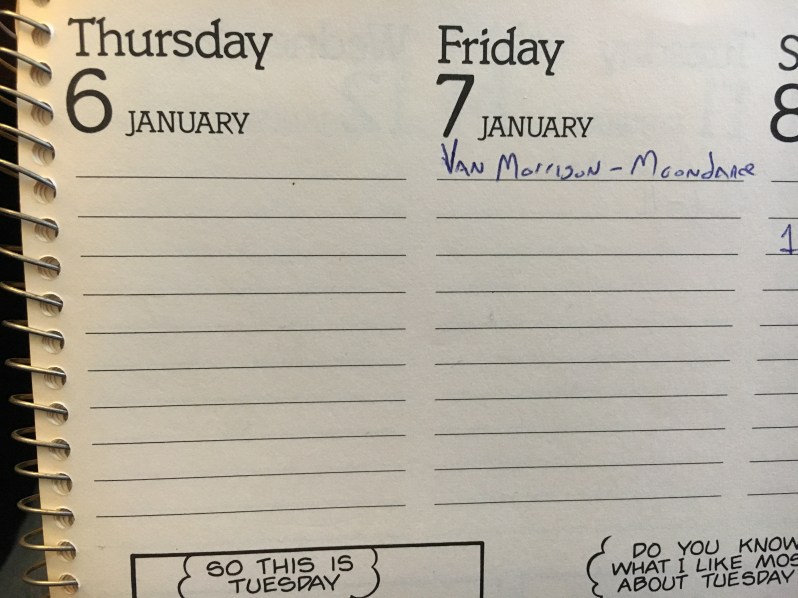 Thursday
6 JANUARY
Friday
7 JANUARY
Van Morrison - Moondance
S
8
1
SO THIS IS
TUESDAY
DO YOU KNOW
WHAT I LIKE MOS
ABOUT TUESDAY